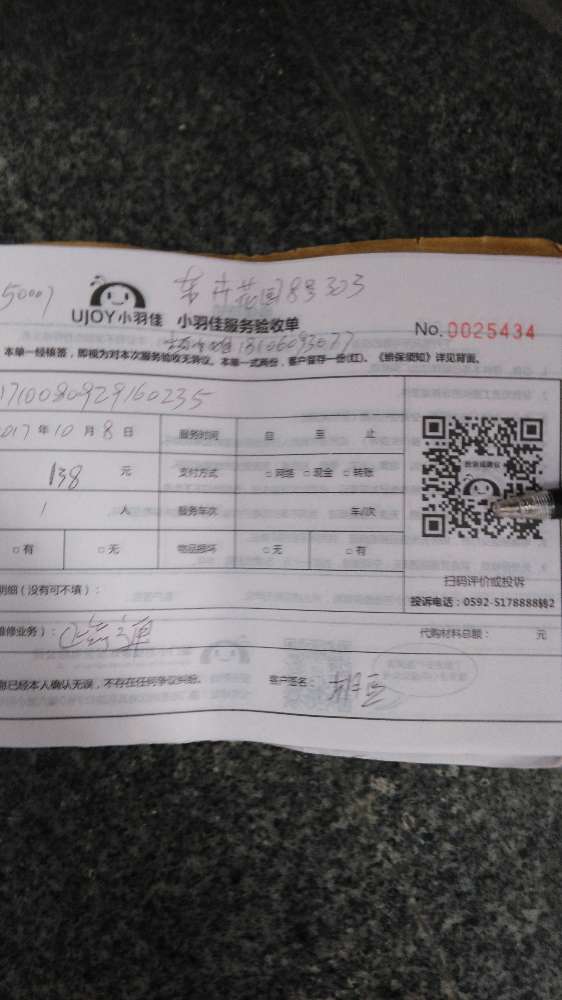 50007
花园8号303
UJOY小羽佳 小羽佳服务验收单
No.0025434
本单一经核签，即视为对本次服务验收无异议。本单一式两份，客户留存一份(红)。《维保须知》详见背面。
1710080929160235
017年10月8日 服务时间 自 至 止
138元 支付方式 □网络 □现金 □转账
1人 服务车次 车/次
□有 □无 物品损坏 □无 □有
扫码评价或投诉
明细（没有可不填）：
投诉电话：0592-5178888转2
维修业务）： 代购材料总额： 元
已经本人确认无误，不存在任何争议纠纷。 客户签名：